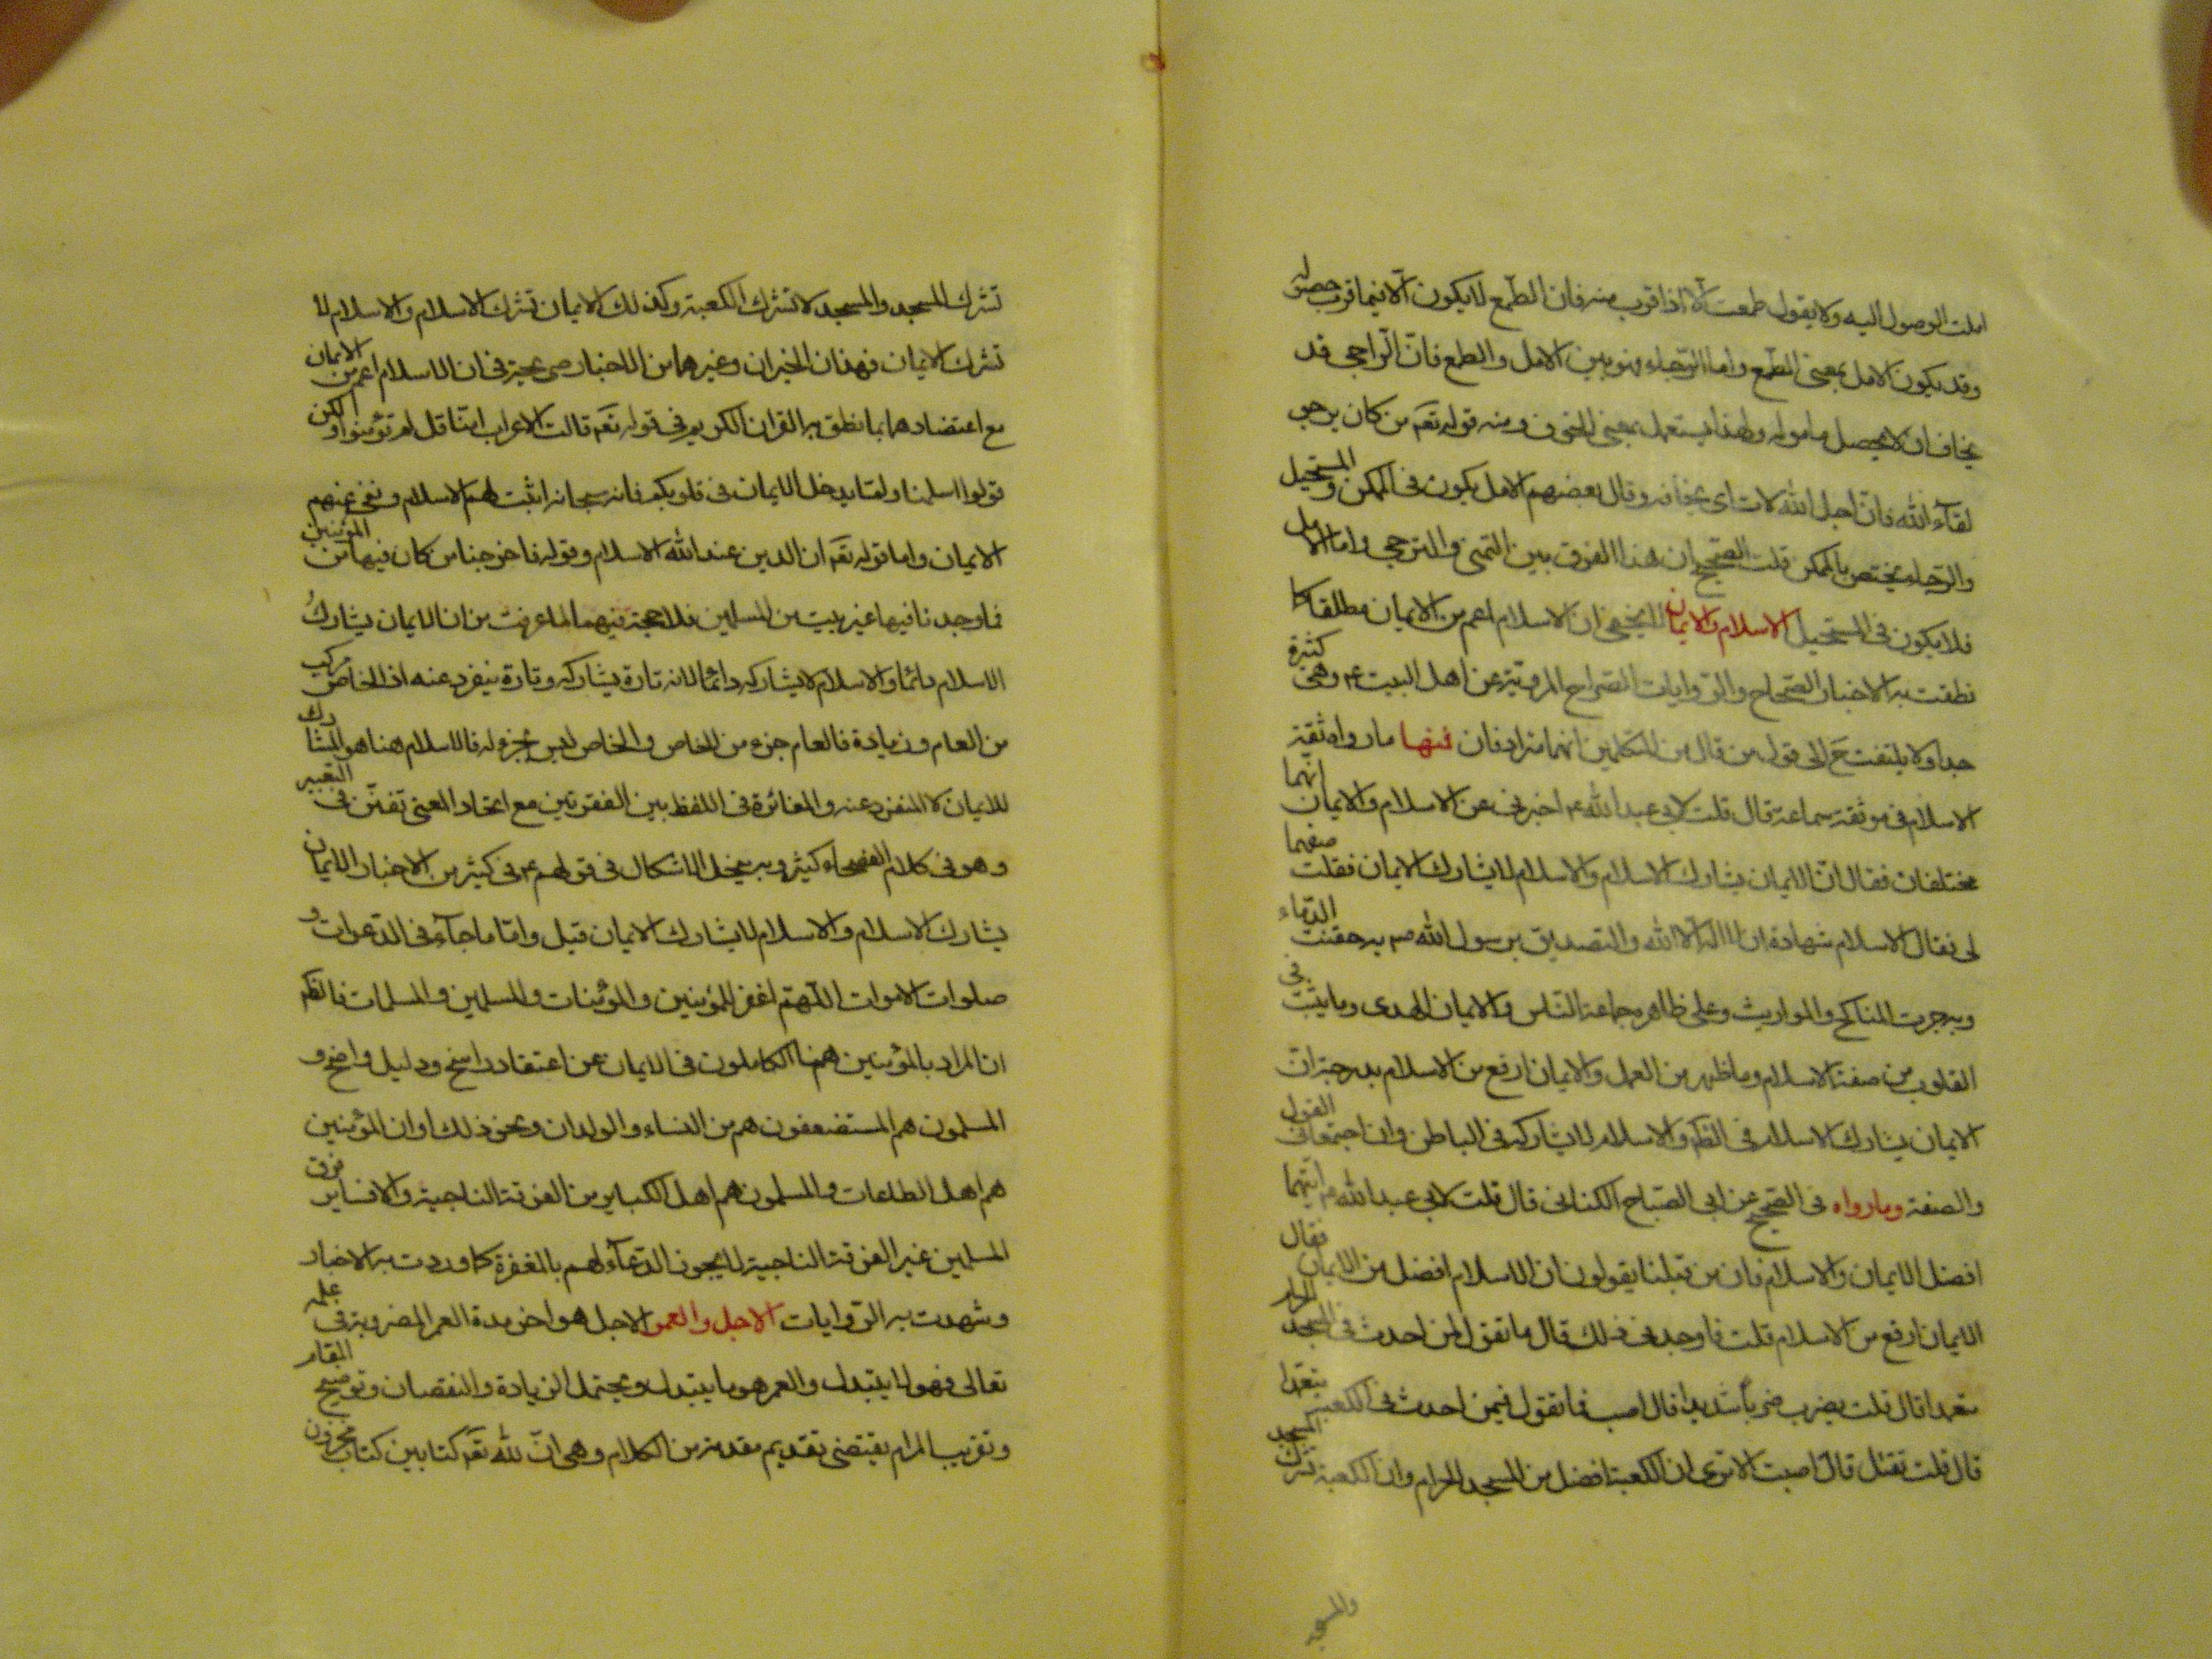 املت الوصول اليه ولا يقول طمعت الا اذا قرب منه فان الطمع لا يكون الا فيما قرب حصوله
وقد يكون الامل بمعنى الطمع واما الرجاء فهو بين الامل والطمع فان الراجي قد
يخاف ان لا يحصل مأموله ولهذا يستعمل بمعنى الخوف ومنه قوله تعم من كان يرجو
لقاء الله فان اجل الله لات اى يخافه وقال بعضهم الامل يكون فى الممكن والمستحيل
والرجاء يختص بالممكن قلت الصحيح ان هذا الفرق بين التمنى والترجي واما الامل
فلا يكون فى المستحيل الاسلام والايمان لا يخفى ان الاسلام اعم من الايمان مطلقا كما
نطقت به الاخبار الصحاح والروايات الصراح المروية عن اهل البيت ع وهى كثيرة
جدا ولا يلتفت ح الى قول من قال من المتكلمين انهما مترادفان فمنها ما رواه ثقة
الاسلام فى موثقة سماعة قال قلت لابي عبد الله ع اخبرنى عن الاسلام والايمان انهما
مختلفان فقال ان الايمان يشارك الاسلام والاسلام لا يشارك الايمان فقلت صفهما
لى فقال الاسلام شهادة ان لا اله الا الله والتصديق برسول الله صم به حقنت الدماء
وبه جرت المناكح والمواريث وعلى ظاهره جماعة الناس والايمان الهدى وما يثبت فى
القلوب من صفة الاسلام وما ظهر من العمل والايمان ارفع من الاسلام بدرجة ان
الايمان يشارك الاسلام فى الظم والاسلام لا يشاركه فى الباطن وان اجتمعا فى القول
والصفة وما رواه فى الصحيح عن ابى الصباح الكنانى قال قلت لابي عبد الله ع ايهما
افضل الايمان والاسلام فان من قبلنا يقولون ان الاسلام افضل من الايمان فقال
الايمان ارفع من الاسلام قلت فاوجدنى ذلك قال ما تقول لمن احدث فى المسجد الحرام
متعمدا قال قلت يضرب ضربا شديدا قال اصبت فما تقول فيمن احدث فى الكعبة متعمدا
قال قلت تقتل قال اصبت الا ترى ان الكعبة افضل من المسجد الحرام وان الكعبة تشرك المسجد
تشرك المسجد والمسجد لا تشرك الكعبة وكذلك الايمان تشرك الاسلام والاسلام لا
تشرك الايمان فهذان الخبران وغيرهما من الاخبار صريحة فى ان الاسلام اعم من الايمان
مع اعتضادهما بما نطق به القران الكريم فى قوله تعم قالت الاعراب امنا قل لم تؤمنوا ولكن
قولوا اسلمنا ولما يدخل الايمان فى قلوبكم فانه سبحانه اثبت لهم الاسلام ونفى عنهم
الايمان واما قوله تعم ان الدين عند الله الاسلام وقوله فاخرجنا من كان فيها من المؤمنين
فما وجدنا فيها غير بيت من المسلمين فلا حجة فيهما لما عرفت من ان الايمان يشارك
الاسلام دائما والاسلام لا يشاركه دائما لانه تارة يشاركه وتارة ينفرد عنه اذ الخاص مركب
من العام وزيادة فالعام جزء من الخاص والخاص ليس بجزء له فالاسلام هنا هو المشارك
للايمان لا المنفرد عنه والمغائرة فى اللفظ بين الفقرتين مع اتحاد المعنى تفنن فى التعبير
وهو فى كلام الفصحاء كثير وبه ينحل الاشكال فى قولهم ع فى كثير من الاخبار الايمان
يشارك الاسلام والاسلام لا يشارك الايمان قيل واما ما جاء فى الدعوات و
صلوات الاموات اللهم اغفر للمؤمنين والمؤمنات والمسلمين والمسلمات فالظم
ان المراد بالمؤمنين هنا الكاملون فى الايمان عن اعتقاد راسخ ودليل واضح و
المسلمون هم المستضعفون هم من النساء والولدان ونحو ذلك او ان المؤمنين
هم اهل الطاعات والمسلمون هم اهل الكباير من الفرقة الناجية والا فساير فرق
المسلمين غير الفرقة الناجية لا يجوز الدعاء لهم بالمغفرة كما وردت به الاخبار
وشهدت به الروايات الاجل والعمر الاجل هو اخر مدة العمر المضروبة فى علمه
تعالى فهو لا يتبدل والعمر هو ما يتبدل ويحتمل الزيادة والنقصان وتوضيح المقام
وتقريب المرام يقتضى تقديم مقدمة من الكلام وهى ان لله تعم كتابين كتاب مخزون